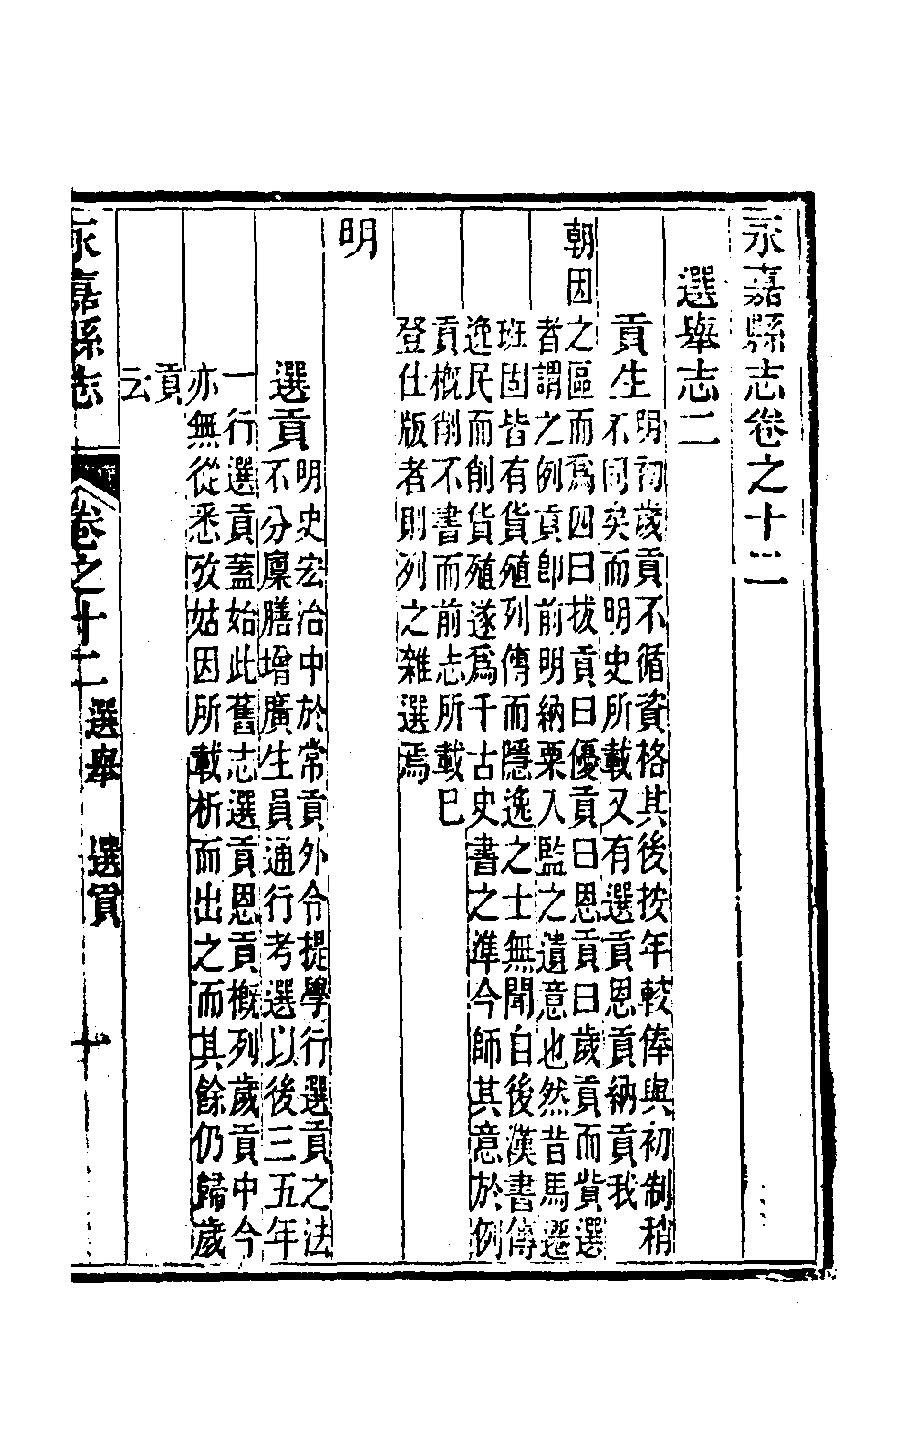 永嘉縣志卷之十二
選舉志二
貢生明初歲貢不循資格其後按年較俸與初制稍
不同矣而明史所載又有選貢恩貢納貢我
朝因之區而爲四曰拔貢曰優貢曰恩貢曰歲貢而貲選
者謂之例貢卽前明納粟入監之遺意也然昔馬遷
班固皆有貨殖列傳而隱逸之士無聞自後漢書傳
逸民而削貨殖遂爲千古史書之準今師其意於例
貢概削不書而前志所載已
登仕版者則列之雜選焉
明
選貢明史宏治中於常貢外令提學行選貢之法
不分廩膳增廣生員通行考選以後三五年
一行選貢蓋始此舊志選貢恩貢概列歲貢中今
亦無從悉攷姑因所載析而出之而其餘仍歸歲
貢
云
永嘉縣志 卷之十二 選舉 選貢 十